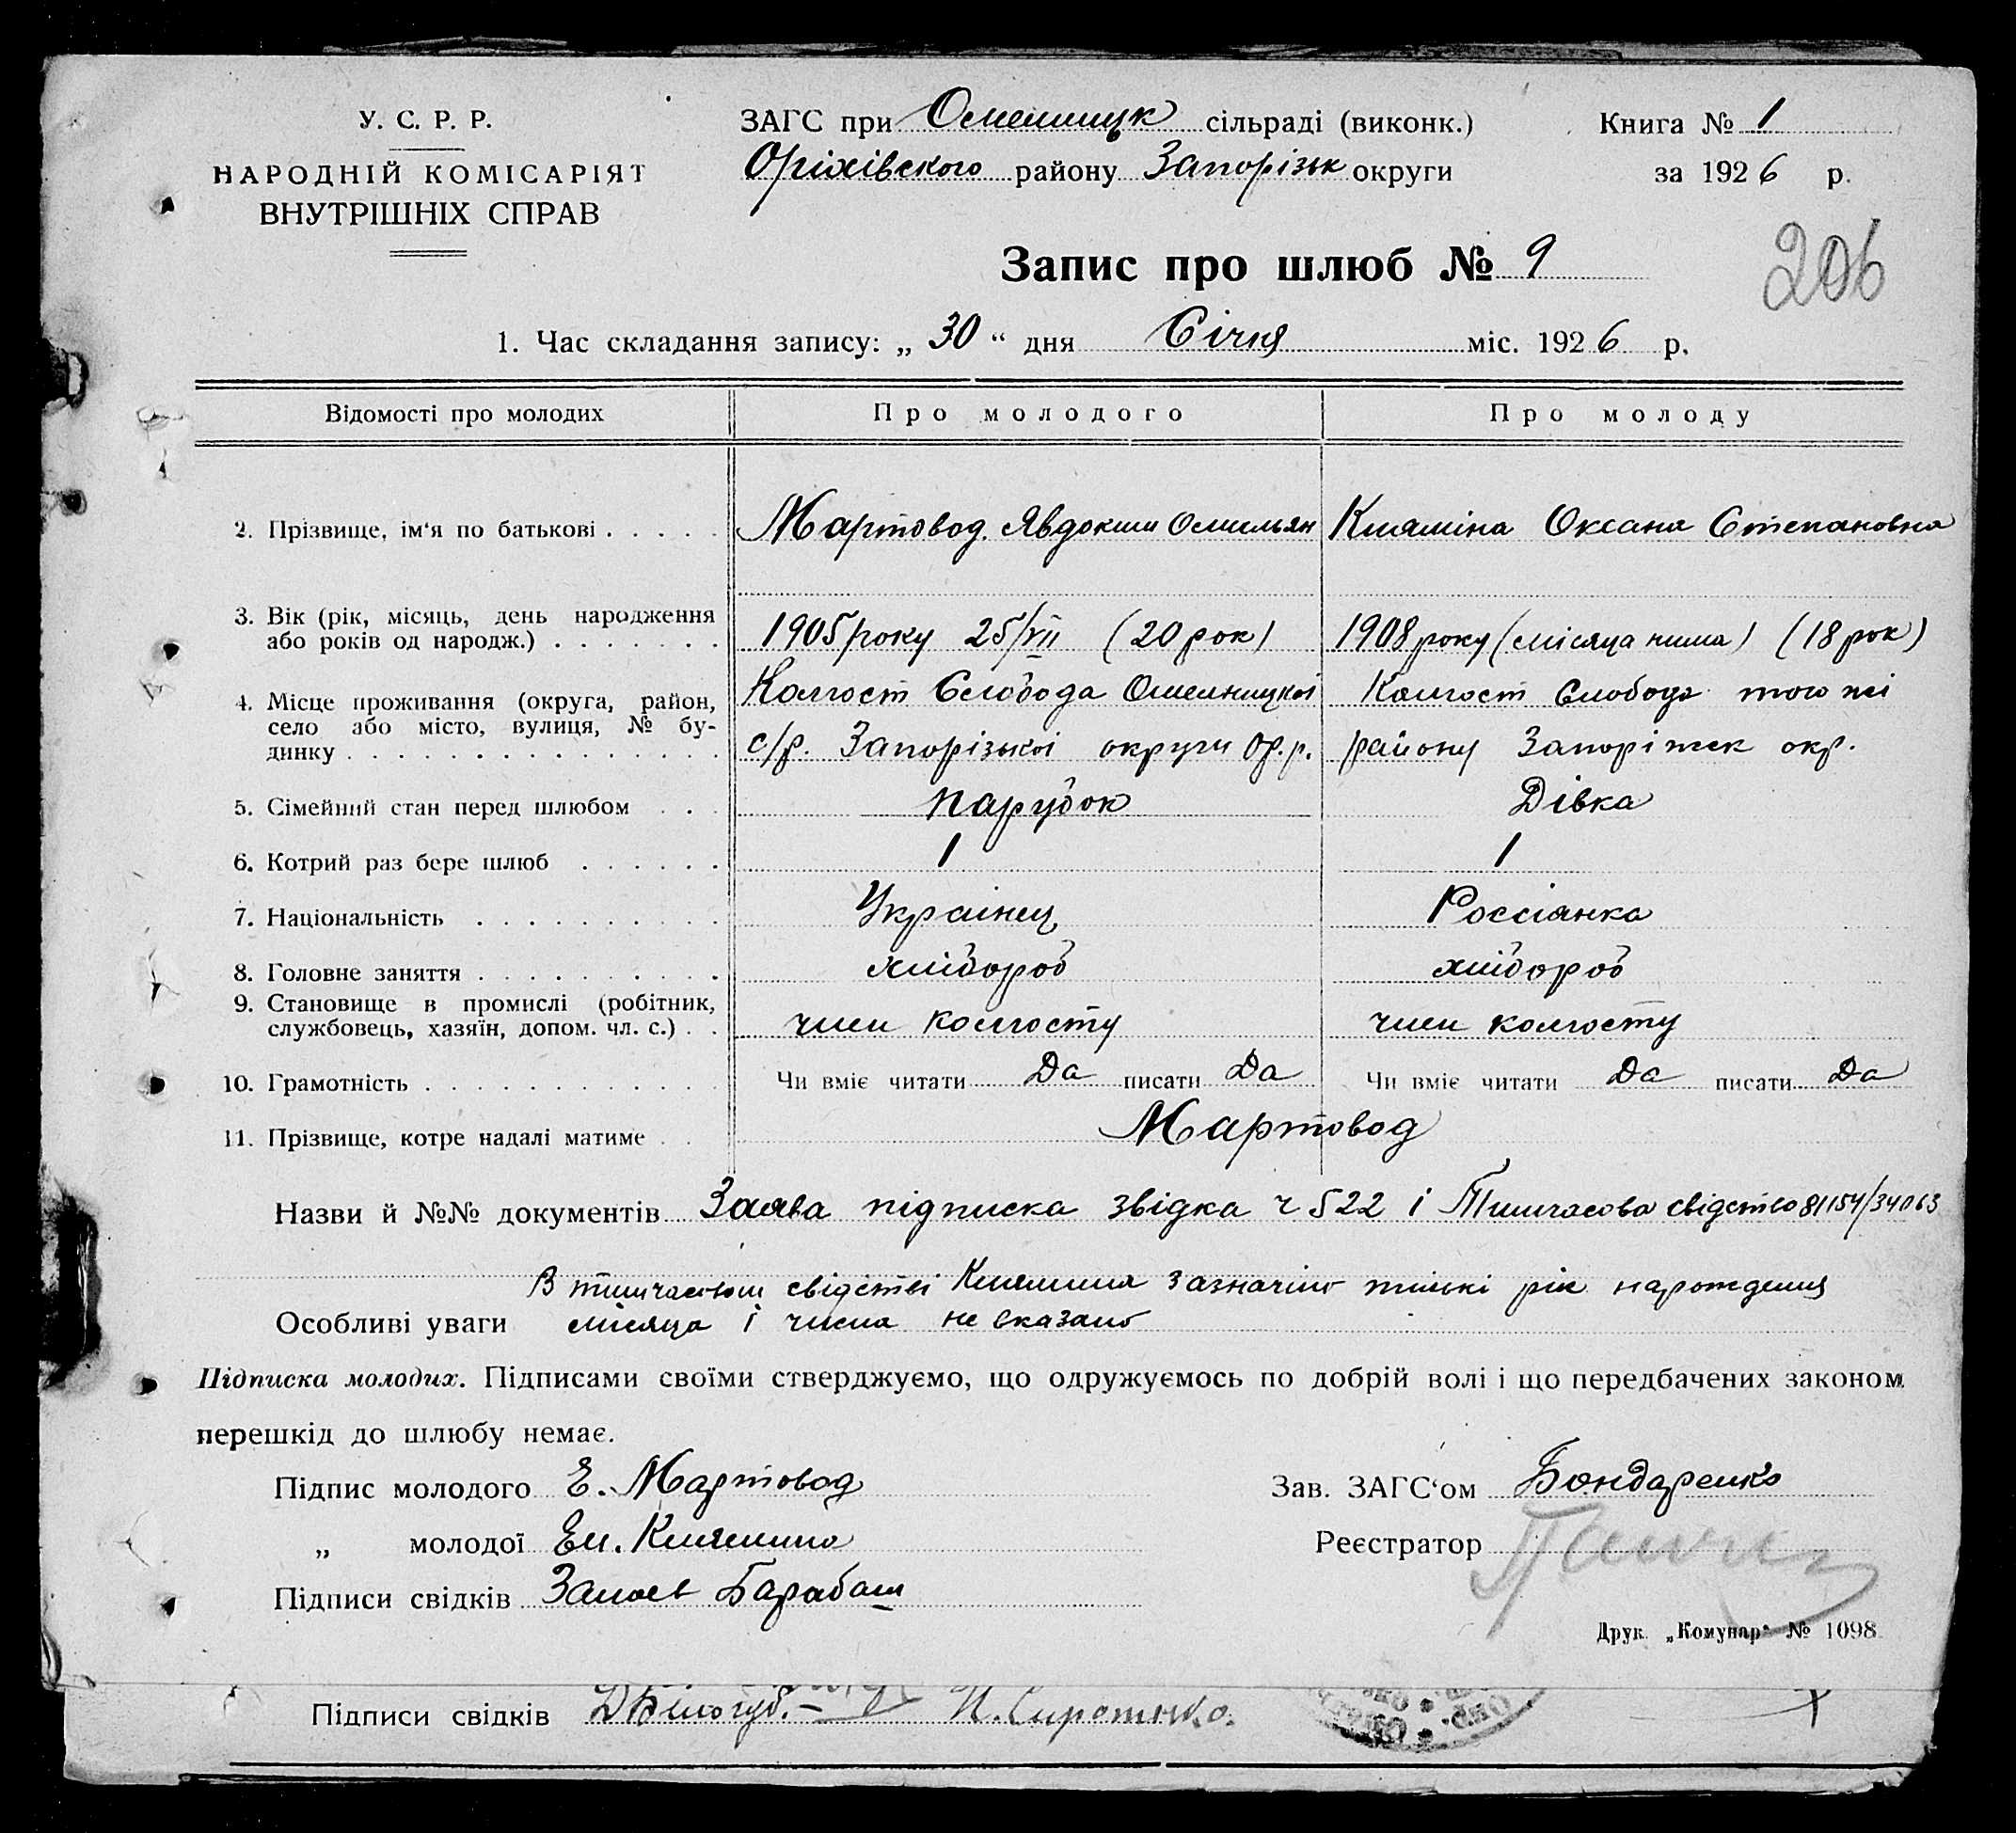 У. С. Р. Р.
НАРОДНІЙ КОМІСАРІЯТ
ВНУТРІШНІХ СПРАВ
ЗАГС при Омельницьк сільраді (виконк.)
Оріхівского району Запорізьк округи
Книга № 1
за 1926 р.
206
Запис про шлюб № 9
1. Час складання запису: „30“ дня Січня міс. 1926 р.
Відомості про молодих Про молодого Про молоду
2. Прізвище, ім‘я по батькові Мартовод Явдоким Омельян Оксана Степановна
3. Вік (рік, місяць, день народження
або років од народж.) 1905 року 25/VII (20 рок) 1908 року (місяца нима) (18 рок)
4. Місце проживання (округа, район,
село або місто, вулиця, № бу-
динку Колгост Слобода Омельницкоі Колгост Слобода того жі
с/р. Запорізькоі округи Ор. р. району Запоріжск окр.
5. Сімейний стан перед шлюбом парубок Дівка
6. Котрий раз бере шлюб 1 1
7. Національність Украінец Россіанка
8. Головне заняття хлібороб хлібороб
9. Становище в промислі (робітник,
службовець, хазяїн, допом. чл. с.) член колгосту член колгосту
10. Грамотність Чи вміє читати Да писати Да Чи вміє читати Да писати Да
11. Прізвище, котре надалі матиме Мартовод
Назви й №№ документів Заява підписка звідка ч 522 і Тимчасова свідство
В тимчасовом свідстві зазначіно тількі рік нарождения
Особливі уваги місяца і числа не вказано
Підписка молодих. Підписами своїми стверджуємо, що одружуємось по добрій волі і що передбачених законом
перешкід до шлюбу немає.
Підпис молодого Е. Мартовод
„ молодої
Підписи свідків Барабаш
Зав. ЗАГС‘ом Бондаренко
Реєстратор
Друк. „Комунар“ № 1098
Підписи свідків Білогуб. И. Сиротенко.